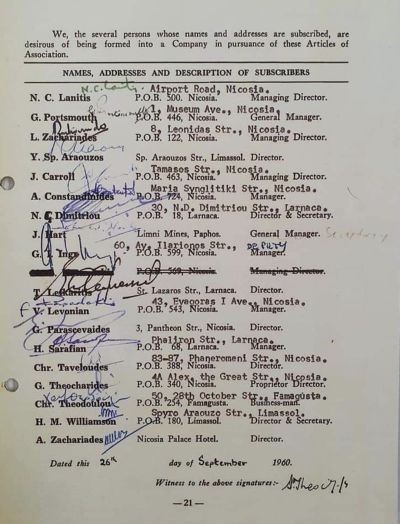 We, the several persons whose names and addresses are subscribed, are
desirous of being formed into a Company in pursuance of these Articles of
Association.
NAMES, ADDRESSES AND DESCRIPTION OF SUBSCRIBERS
Airport Road, Nicosia.
N. C. Lanitis P.O.B. 500, Nicosia. Managing Director.
1, Museum Ave., Nicosia.
G. Portsmouth P.O.B. 446, Nicosia. General Manager.
8, Leonidas Str., Nicosia.
L. Zachariades P.O.B. 122, Nicosia. Managing Director.
Y. Sp. Araouzos Sp. Araouzos Str., Limassol. Director.
Tamasos Str., Nicosia.
J. Carroll P.O.B. 463, Nicosia. Managing Director.
Maria Synglitiki Str., Nicosia.
A. Constandinides P.O.B. 724, Nicosia. Manager.
20, N.D. Dimitriou Str., Larnaca.
N. Dimitriou P.O.B. 18, Larnaca. Director & Secretary.
J. Hart Limni Mines, Paphos. General Manager. Secretary
60, Av. Ilarionos Str., DEPUTY
G. T. Inge P.O.B. 599, Nicosia. Manager.
P.O.B. 569, Nicosia. Managing Director.
T. Lefkaritis St. Lazaros Str., Larnaca. Director.
43, Evagoras I Ave., Nicosia.
V. Levonian P.O.B. 543, Nicosia. Manager.
G. Parascevaides 3, Pantheon Str., Nicosia. Director.
Phaliron Str., Larnaca.
H. Sarafian P.O.B. 68, Larnaca. Manager.
83-87, Phaneromeni Str., Nicosia.
Chr. Taveloudes P.O.B. 388, Nicosia. Director.
4A Alex. the Great Str., Nicosia.
G. Theocharides P.O.B. 340, Nicosia. Proprietor Director.
50, 28th October Str., Famagusta.
Chr. Theodoulou P.O.B. 254, Famagusta. Business-man.
Spyro Araouzo Str., Limassol.
H. M. Williamson P.O.B. 180, Limassol. Director & Secretary.
A. Zachariades Nicosia Palace Hotel. Director.
Dated this 26th day of September 1960.
Witness to the above signatures:-
—21—